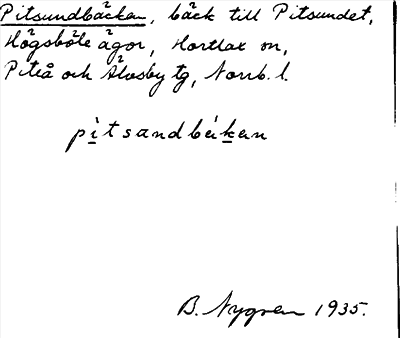 Pitsundbäcken, bäck till Pitsundet,
Högsböle ägor, Hortlax sn,
Piteå och Älvsby tg, Norrb. l.
pìtsandbékan
B. Nygren 1935.